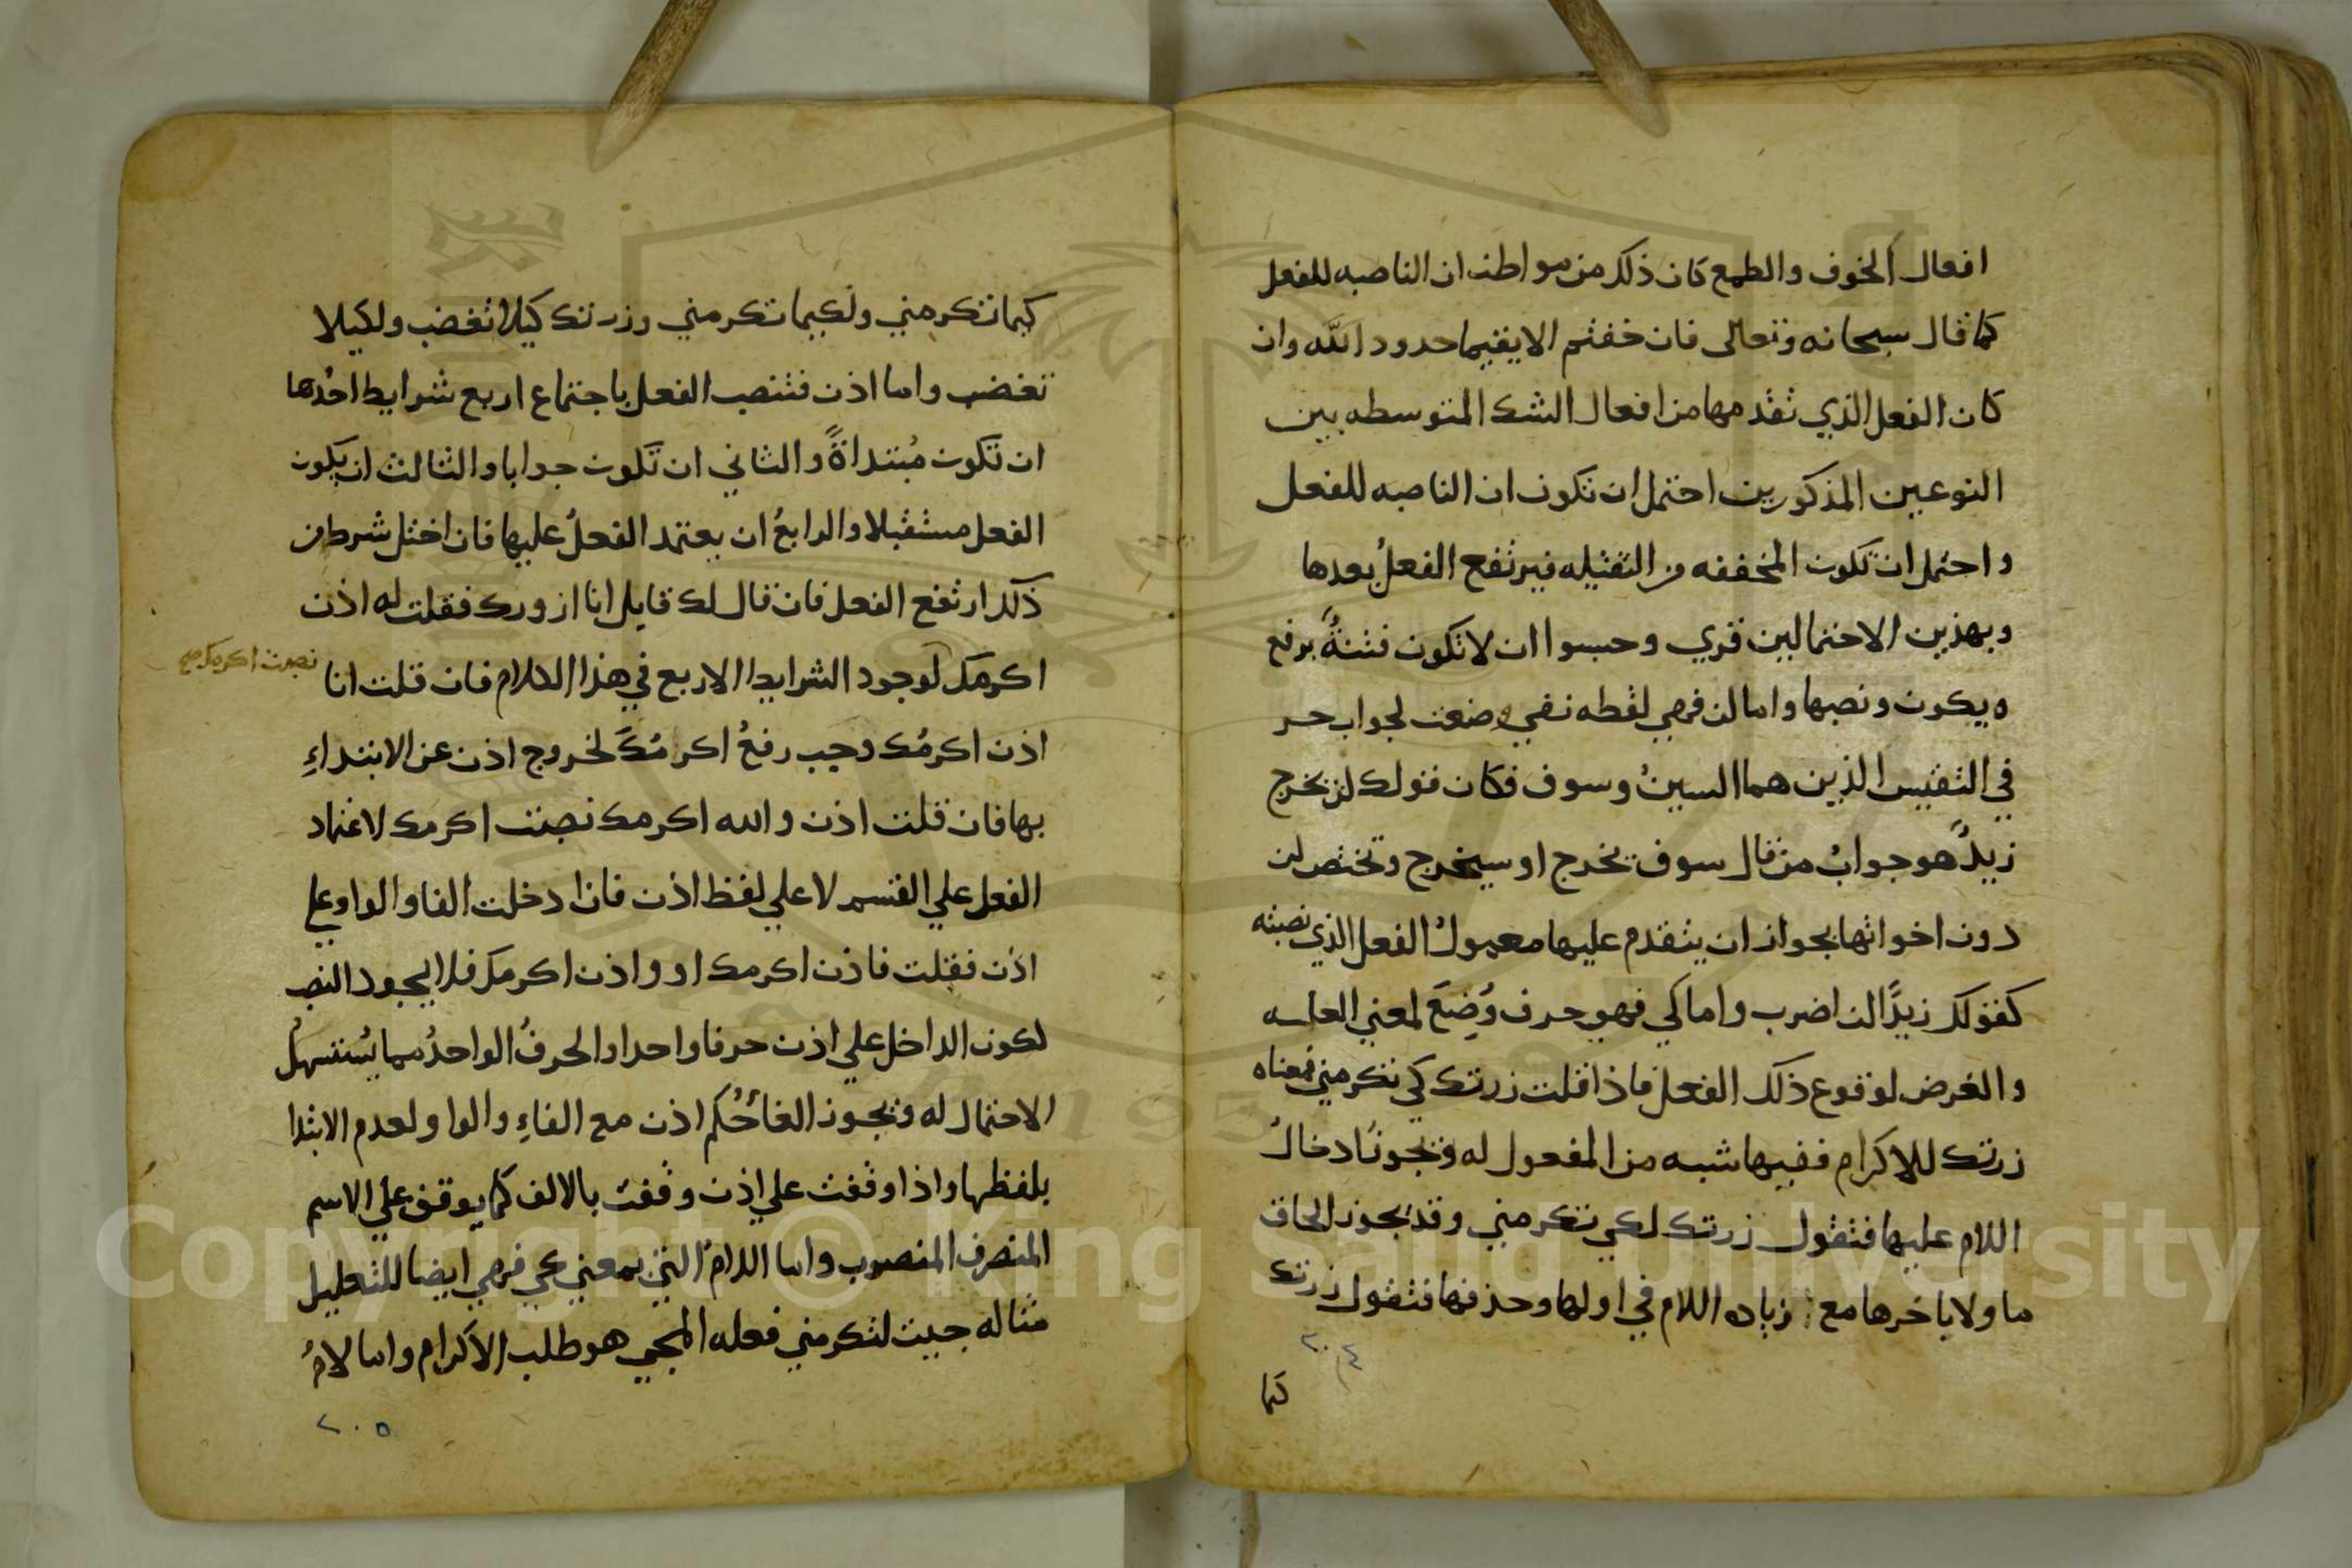 افعال الخوف والطمع كان ذلك من مواطن ان الناصبه للفعل
كما قال سبحانه وتعالى فان خفتم الا يقيما حدود الله وان
كان الفعل الذي تقدمها من افعال الشك المتوسطه بين
النوعين المذكورين احتمل ان تكون ان الناصبه للفعل
واحتمل ان تكون المخففه من الثقيله فيرتفع الفعلُ بعدها
وبهذين الاحتمالين قري وحسبوا ان لا تكون فتنةٌ برفع
يكون ونصبها واما لن فهي لفظه نفي وضعت لجواب حر
في التنفيس الذين هما السينُ وسوف فكان قولك لن يخرج
زيدٌ هو جوابُ من قال سوف يخرج او سيخرج وتختص لن
دون اخواتها بجواز ان يتقدم عليها معمولُ الفعل الذي نصبته
كقولك زيدًا لن اضرب واما كي فهي حرف وُضِعَ لمعني العله
والغرض لوقوع ذلك الفعل فاذا قلت زرتك كي تكرمني فمعناه
زرتك للاكرام ففيها شبه من المفعول له ويجوز ادخالُ
اللام عليها فتقول زرتك لكي تكرمني وقد يجوز الحاق
ما ولا باخرها مع زياده اللام في اولها وحذفها فتقول زرتك
٢٠٤
كما
كيما تكرمني ولكيما تكرمني وزرتك كيلا تغضب ولكيلا
تغضب واما اذن فتنصب الفعل باجتماع اربع شرايط احدها
ان تكون مُبتداةً والثاني ان تكون جوابا والثالث ان يكون
الفعل مستقبلا والرابعُ ان يعتمد الفعلُ عليها فان اختل شرط من
ذلك ارتفع الفعل فان قال لك قايل انا ازورك فقلت له اذن
اكرمك لوجود الشرايط الاربع في هذا الكلام فان قلت انا
نصبت اكرمك صح
اذن اكرمُك وجب رفعُ اكرمُك لخروج اذن عن الابتداءِ
بها فان قلت اذن والله اكرمك نصبت اكرمك لاعتماد
الفعل علي القسم لا علي لفظ اذن فاذا دخلت الفا والواو علي
اذن فقلت فاذن اكرمك او واذن اكرمك فلا يجوز النصب
لكون الداخل علي اذن حرفا واحدا والحرفُ الواحدُ مما يُستسهلُ
الاحتمال له ويجوز الغا حُكم اذن مع الفاءِ والواو لعدم الابتدا
بلفظها واذا وقفت علي اذن وقفت بالالف كما يوقف علي الاسم
المنصرف المنصوب واما اللامُ التي بمعني كي فهي ايضا للتعليل
مثاله جيت لتكرمني فعله المجي هو طلب الاكرام واما لامُ
٢٠٥
Copyright © King Saud University